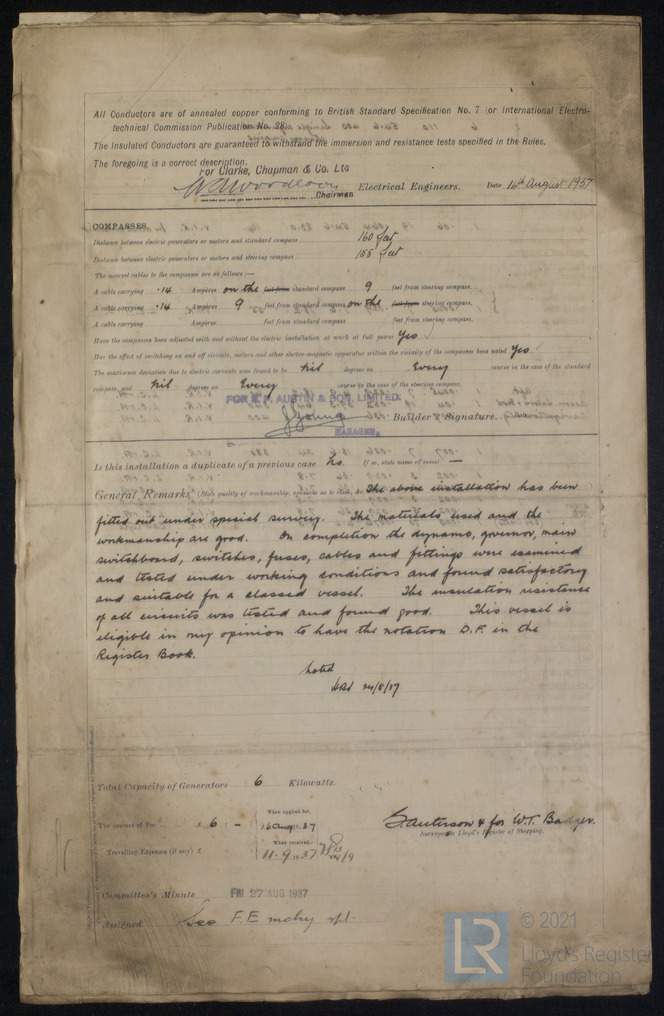 All Conductors are of annealed copper conforming to British Standard Specification No. 7 (or International Electro-
technical Commission Publication No. 28).
The Insulated Conductors are guaranteed to withstand the immersion and resistance tests specified in the Rules.
The foregoing is a correct description.
For Clarke, Chapman & Co. Ltd
Chairman Electrical Engineers. Date 14th August 1937
COMPASSES.
Distance between electric generators or motors and standard compass 160 feet
Distance between electric generators or motors and steering compass 155 feet
The nearest cables to the compasses are as follows:—
A cable carrying .14 Ampères on the feet from standard compass 9 feet from steering compass.
A cable carrying .14 Ampères 9 feet from standard compass on the feet from steering compass.
A cable carrying Ampères feet from standard compass feet from steering compass.
Have the compasses been adjusted with and without the electric installation at work at full power Yes
Has the effect of switching on and off circuits, motors and other electro-magnetic apparatus within the vicinity of the compasses been noted Yes
The maximum deviation due to electric currents was found to be Nil degrees on Every course in the case of the standard
compass, and Nil degrees on Every course in the case of the steering compass.
FOR S. P. AUSTIN & SON, LIMITED.
J Young Builder's Signature.
MANAGER.
Is this installation a duplicate of a previous case No. If so, state name of vessel —
General Remarks (State quality of workmanship, opinions as to class, &c. The above installation has been
fitted out under special survey. The materials used and the
workmanship are good. On completion the dynamo, governor, main
switchboard, switches, fuses, cables and fittings were examined
and tested under working conditions and found satisfactory
and suitable for a classed vessel. The insulation resistance
of all circuits was tested and found good. This vessel is
eligible in my opinion to have the notation D.F. in the
Register Book.
Noted
24/8/37
Total Capacity of Generators 6 Kilowatts.
The amount of Fee £ 6 : - When applied for,
16 Aug 1937
for W.T. Badger.
Surveyor to Lloyd's Register of Shipping.
Travelling Expenses (if any) £ When received,
11.9.1937
Committee's Minute FRI 27 AUG 1937
Assigned See F.E. mchy rpt.
LR © 2021
Lloyd's Register
Foundation